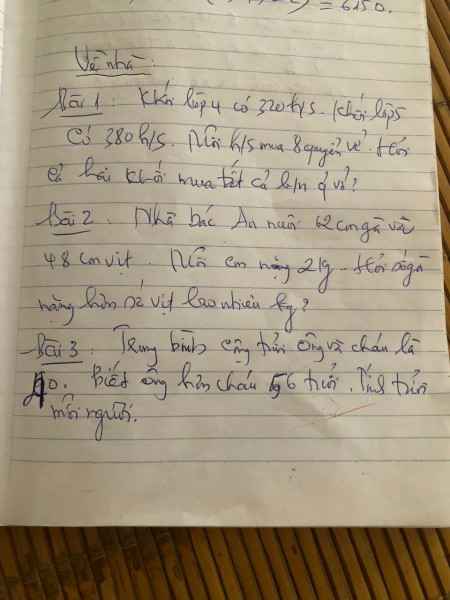 = 6150.
Về nhà:
Bài 1: Khối lớp 4 có 320 h/s. Khối lớp 5
có 380 h/s. Mỗi h/s mua 8 quyển vở. Hỏi
cả hai khối mua tất cả b/n q vở?
Bài 2. Nhà bác An nuôi 62 con gà và
48 con vịt. Mỗi con nặng 2 kg. Hỏi số gà
nặng hơn số vịt bao nhiêu kg?
Bài 3. Trung bình cộng tuổi ông và cháu là
40. Biết ông hơn cháu 56 tuổi. Tính tuổi
mỗi người.